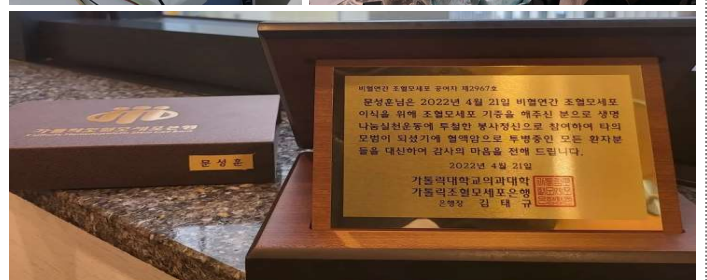 가톨릭조혈모세포은행
문성훈
비혈연간 조혈모세포 공여자 제2967호
문성훈님은 2022년 4월 21일 비혈연간 조혈모세포
이식을 위해 조혈모세포 기증을 해주신 분으로 생명
나눔실천운동에 투철한 봉사정신으로 참여하여 타의
모범이 되셨기에 혈액암으로 투병중인 모든 환자분
들을 대신하여 감사의 마음을 전해 드립니다.
2022년 4월 21일
가톨릭대학교의과대학
가톨릭조혈모세포은행
은행장 김 태 규